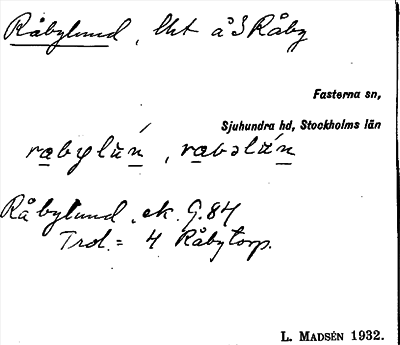 Råbylund, lht å 3 Råby
Fasterna sn,
Sjuhundra hd, Stockholms län
rabylún, rabəlún
Råbylund. ek. G. 84
Trol. = 4 Råbytorp.
L. MADSÉN 1932.